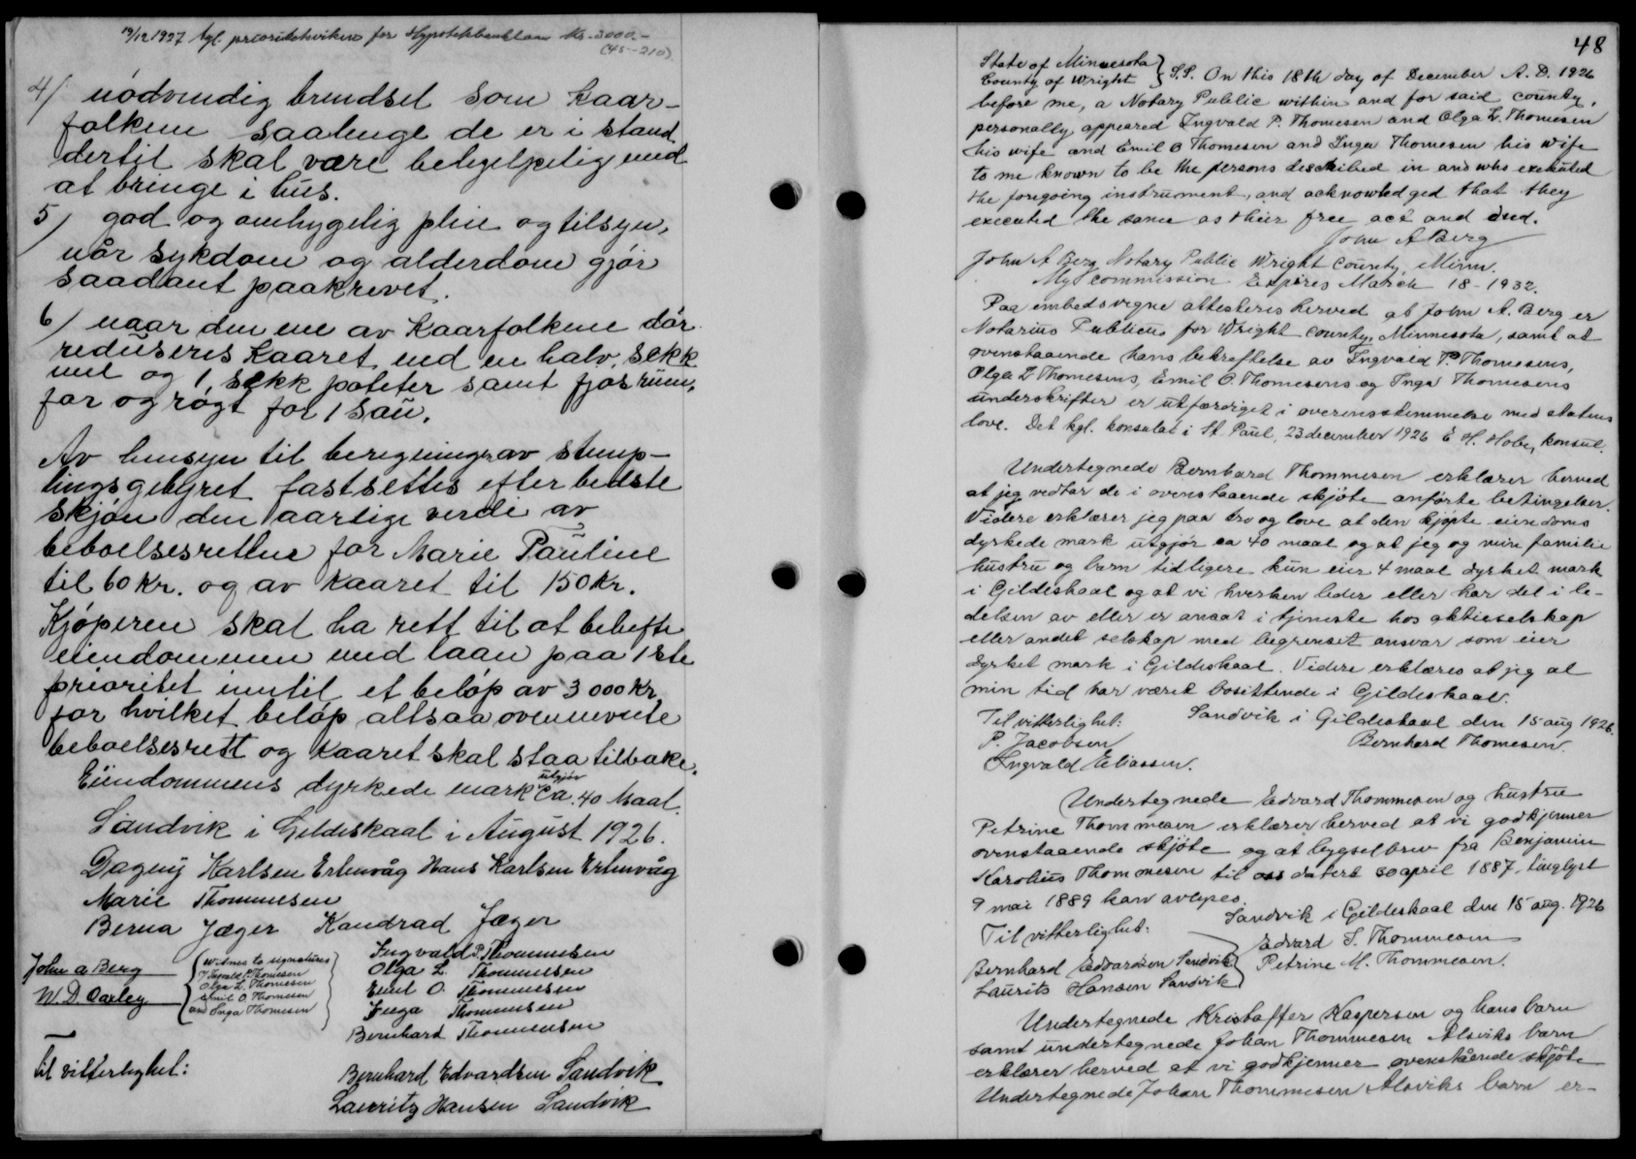 19/12 1927 tgl. prioritetsviken for Hypotekbanklaan kr. 3000.-
(45-210)
4/ nödvendig brendsel som kaar-
folkene saalenge de er i stand
dertil skal være behjelpelig med
at bringe i hus.
5/ god og omhygelig pleie og tilsyn,
når sykdom og alderdom gjør
saadant paakrevet.
6/ naar den ene av kaarfolkene dör
reduseres kaaret med en halv sekk
mel og 1 sekk poteter samt fjøsrum,
for og røgt for 1 sau.
Av hensyn til beregning av stemp-
lingsgebyret fastsettes efter bedste
skjön den aarlige verdi av
beboelsesretten for Marie Pauline
til 60 Kr. og av kaaret til 150 Kr.
Kjöperen skal ha rett til at behefte
eiendommen med laan paa 1ste
prioritet inntil et belöp av 3000 kr
for hvilket belöp altsaa ovennevnte
beboelsesrett og kaaret skal staa tilbake.
Eiendommens dyrkede mark utgjør ca. 40 Maal.
Sandvik i Gildeskaal i August 1926.
Dagny Karlsen Erlenvåg Hans Karlsen Erlenvåg
Marie Thommesen
Berna Jæger Kondrad Jæger
Ingvald P. Thommesen
Olga L. Thommesen
Emil O. Thommesen
Inga Thommesen
Bernhard Thommesen
John A Berg
W. D. Oakley
(Witnes to signatures
of Ingvald P. Thomesen
Olga L. Thomesen
Emil O. Thomesen
and Inga Thomesen)
Til vitterlighet:
Bernhard Edvardsen Sandvik
Lauritz Hansen Sandvik
48
State of Minnesota
County of Wright } S.S. On this 18th day of December A. D. 1926
before me, a Notary Public within and for said county,
personally appeared Ingvald P. Thomesen and Olga L. Thomesen
his wife and Emil O Thomesen and Inga Thomesen his wife
to me known to be the persons described in and who executed
the foregoing instrument, and acknowledged that they
executed the same as their free act and deed.
John A Berg
John A Berg Notary Public Wright County, Minn.
My commission Expires March 18-1932.
Paa embedsvegne attesteres herved at John A. Berg er
Notarius Publicus for Wright County, Minnesota, samt at
ovenstaaende hans bekreftelse av Ingvald P. Thomesens,
Olga L Thomesens, Emil O. Thomesens og Inga Thomesens
underskrifter er utfærdiget i overensstemmelse med statens
love. Det kgl. konsulat i St. Paul, 23 december 1926 E H. Hobe, konsul.
Undertegnede Bernhard Thommesen erklærer herved
at jeg vedtar de i ovenstaaende skjöte anførte betingelser.
Videre erklærer jeg paa tro og love at den kjøpte eiendoms
dyrkede mark utgjør ca 40 maal og at jeg og min familie
hustru og barn tidligere kun eier 4 maal dyrket mark
i Gildeskaal og at vi hverken leder eller har del i le-
delsen av eller er ansat i tjeneste hos aktieselskap
eller andet selskap med begrenset ansvar som eier
dyrket mark i Gildeskaal. Videre erklæres at jeg al
min tid har været bosittende i Gildeskaal.
Sandvik i Gildeskaal den 15 aug 1926.
Til vitterlighet:
Bernhard Thomesen.
P. Jacobsen
Ingvald Eliassen.
Undertegnede Edvard Thommesen og hustru
Petrine Thommesen erklærer herved at vi godkjenner
ovenstaaende skjöte og at bygselbrev fra Benjamin
Karolius Thommesen til oss datert 30 april 1887, tinglyst
9 mai 1889 kan avlyses.
Sandvik i Gildeskaal den 15 aug. 1926
Til vitterlighet:
Edvard S. Thommesen
Bernhard Edvardsen Sandvik
Petrine M. Thommesen.
Laurits Hansen Sandvik
Undertegnede Kristoffer Kaspersen og hans barn
samt undertegnede Johan Thommesen Alsviks barn
erklærer herved at vi godkjenner ovenstående skjöte
Undertegnede Johan Thommesen Alsviks barn er-